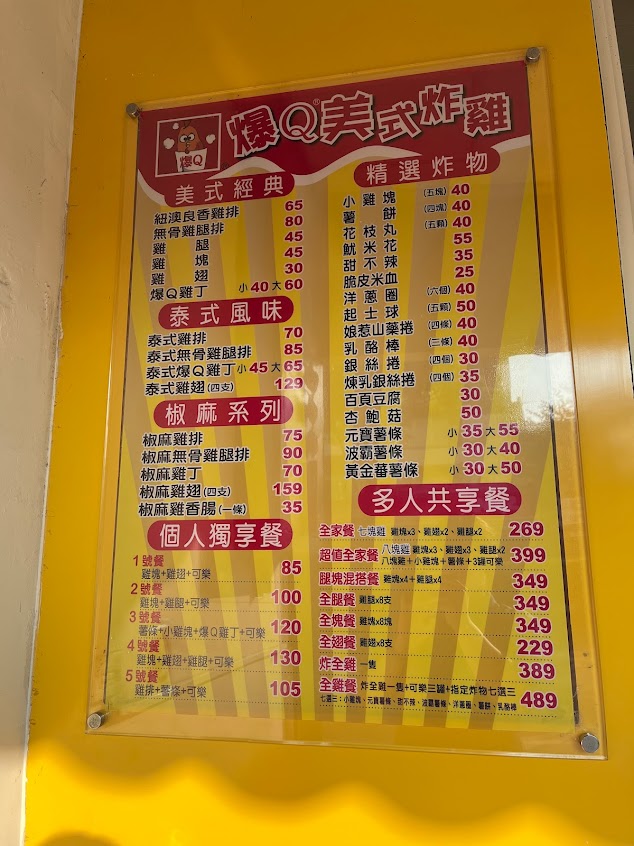 爆Q
爆Q®美式炸雞
美式經典
紐澳良香雞排 65
無骨雞腿排 80
雞腿 45
雞塊 45
雞翅 30
爆Q雞丁 小40大60
泰式風味
泰式雞排 70
泰式無骨雞腿排 85
泰式爆Q雞丁 小45大65
泰式雞翅(四支) 129
椒麻系列
椒麻雞排 75
椒麻無骨雞腿排 90
椒麻雞丁 70
椒麻雞翅(四支) 159
椒麻雞香腸(一條) 35
個人獨享餐
1號餐
雞塊+雞翅+可樂 85
2號餐
雞塊+雞腿+可樂 100
3號餐
薯條+小雞塊+爆Q雞丁+可樂 120
4號餐
雞塊+雞翅+雞腿+可樂 130
5號餐
雞排+薯條+可樂 105
精選炸物
小雞塊 (五塊) 40
薯餅 (四塊) 40
花枝丸 (五顆) 40
魷米花 55
甜不辣 35
脆皮米血 25
洋蔥圈 (六個) 40
起士球 (五顆) 50
娘惹山藥捲 (四條) 40
乳酪棒 (三條) 40
銀絲捲 (四個) 30
煉乳銀絲捲 (四個) 35
百頁豆腐 30
杏鮑菇 50
元寶薯條 小35大55
波霸薯條 小30大40
黃金蕃薯條 小30大50
多人共享餐
全家餐 七塊雞 雞塊x3、雞翅x2、雞腿x2 269
超值全家餐 八塊雞 雞塊x3、雞翅x3、雞腿x2 399
八塊雞+小雞塊+薯條+3罐可樂
腿塊混搭餐 雞塊x4+雞腿x4 349
全腿餐 雞腿x8支 349
全塊餐 雞塊x8塊 349
全翅餐 雞翅x8支 229
炸全雞 一隻 389
全雞餐 炸全雞一隻+可樂三罐+指定炸物七選三 489
七選三：小雞塊、元寶薯條、甜不辣、波霸薯條、洋蔥圈、薯餅、乳酪棒